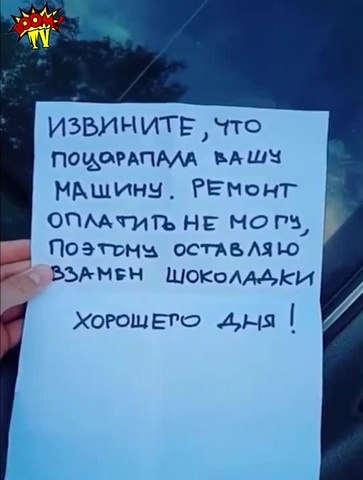 BOOM!
TV
ИЗВИНИТЕ, ЧТО
ПОЦАРАПАЛА ВАШУ
МАШИНУ. РЕМОНТ
ОПЛАТИТЬ НЕ МОГУ,
ПОЭТОМУ ОСТАВЛЯЮ
ВЗАМЕН ШОКОЛАДКИ
ХОРОШЕГО ДНЯ!